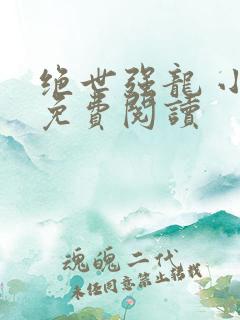 绝世强龍 小
免費閱讀
魂魄二代
未经同意禁止转载